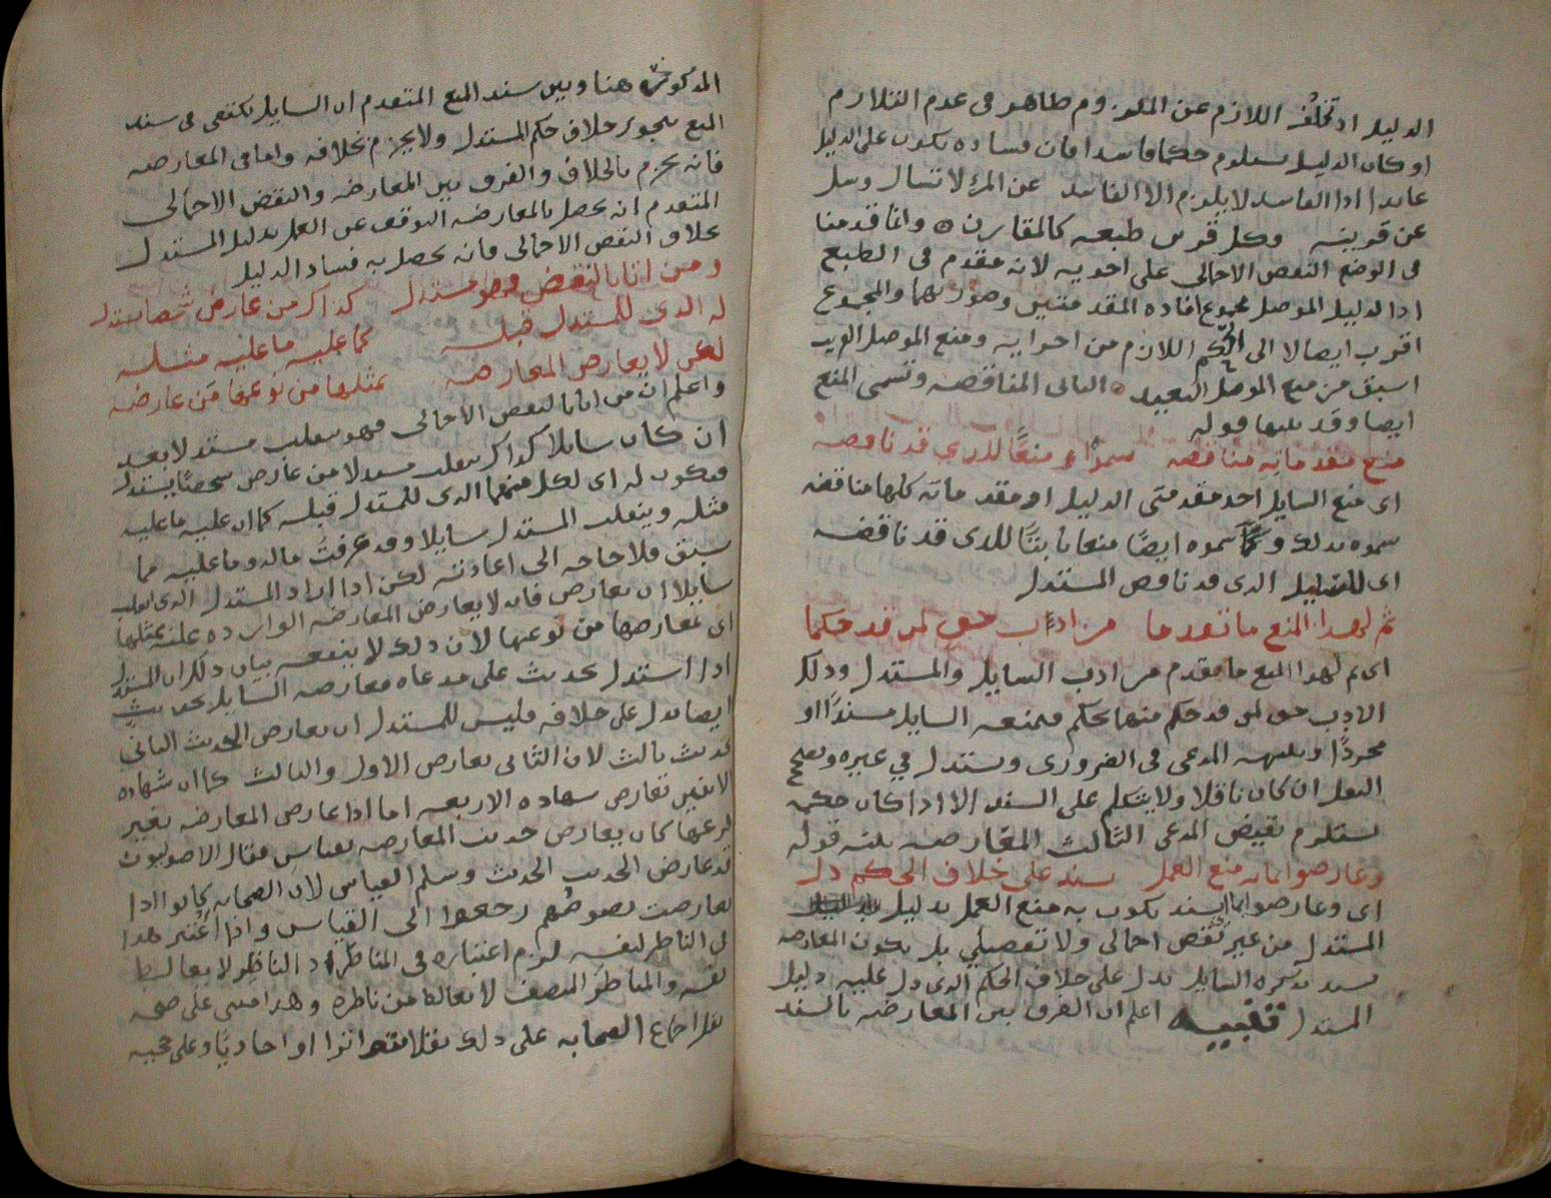 الدليل اذ تخلف اللازم عن الملزوم ظاهر فى عدم التلازم
او كان الدليل يستلزم حكما فاسدا فان فساده يكون على الدليل
عايدا اذ الفاسد لا يلزم الا الفاسد عن المرء لا تسال وسل
عن قرينه وكل قرين طبعه كالمقارن ٥ وانما قدمنا
فى الوضع النقض الاجمالى على اخويه لانه مقدم فى الطبع
اذ الدليل الموصل مجموع افاده المقدمتين وصورتهما والمجموع
اقرب ايصالا الى الحكم اللازم من اجزايه ومنع الموصل القريب
اسبق من منع الموصل البعيد ٥ الثانى المناقضه وتسمى المنع
ايضا وقد بينها قوله
منع مقدماته مناقضه سموا منعًا للذي قد ناقضه
اى منع السايل احد مقدمتى الدليل او مقدماته كلها مناقضه
سموه بذلك وكما سموه ايضًا منعا ثابتًا للذى قد ناقضه
اى للدليل الذى قد ناقض المستدل
ثم لهذا المنع ما تقدما من ادب حق لمن قد حكما
اى ثم لهذا المنع ما تقدم من ادب السايل والمستدل وذلك
الادب حق لمن قد حكم منهما بحكم فيمنعه السايل مسندًا او
مجردًا وينبهه المدعى فى الضرورى ويستدل في غيره ويصحح
النقل ان كان ناقلا ولا يتكلم على السند الا اذا كان حكمه
يستلزم نقيض المدعى الثالث المعارضه بينه قوله
وعارضوا بانه منع العمل بسند على خلاف الحكم دل
اى وعارضوا بسند يكون به منع العمل بدليل
المستدل من غير نقض اجمالى ولا تفصيلي بل يكون المعارضه
بسند يذكره السايل يدل على خلاف الحكم الذى دل عليه دليل
المستدل تنبيه اعلم ان الفرق بين المعارضه بالسند
المذكور هنا وبين سند المنع المتقدم ان السايل يكتفى فى سند
المنع بتجويز خلاف حكم المستدل ولا يجزم بخلافه واما فى المعارضه
فانه يجزم بالخلاف والفرق بين المعارضه والنقض الاجمالى
المتقدم انه يحصل بالمعارضه التوقف عن العمل بدليل المستدل
بخلاف النقض الاجمالى فانه يحصل به فساد الدليل
ومن اتى بالنقض فهو مستدل كذاك من عارض شخصا يستدل
له الذى للمستدل قبله كما عليه ما عليه مثله
لكن لا يعارض المعارضه بمثلها من نوعها من عارضه
واعلم ان من اتى بالنقض الاجمالى فهو ينقلب مستدلا بعد
ان كان سايلا كذاك ينقلب مستدلا من عارض شخصًا يستدل
فيكون له اى لكل منهما الذى للمستدل قبله كما ان عليه ما عليه
مثله وينقلب المستدل سايلا وقد عرفت ماله وما عليه مما
سبق فلا حاجه الى اعادته لكن اذا اراد المستدل الذى انقلب
سايلا ان يعارض فانه لا يعارض المعارضه الوارده عليه بمثلها
اى بمعارضها من نوعها لان ذلك لا ينفعه بيان ذلك ان المستدل
اذا استدل بحديث على مدعاه فعارضه السايل بحديث
ايضا يدل على خلافه فليس للمستدل ان يعارض الحديث الثانى
بحديث ثالث لان الثانى يعارض الاول والثالث كما ان شهاده
الاثنين تعارض شهاده الاربعه اما اذا عارض المعارضه بغير
نوعها كان يعارض حديث المعارضه بقياس فقال الاصوليون
قد عارض الحديث الحديث وسلم القياس لان الصحابه كانوا اذا
تعارضت نصوصهم رجعوا الى القياس واذا اعتبر هذا
فى الناظر لنفسه لزم اعتباره فى المناظر اذ الناظر لا يغالط
نفسه والمناظر المنصف لا يغالط من ناظره وهذا مبنى على صحه
نقل اجماع الصحابه على ذلك نقلا متواترا او احاديًا وعلى حجيه